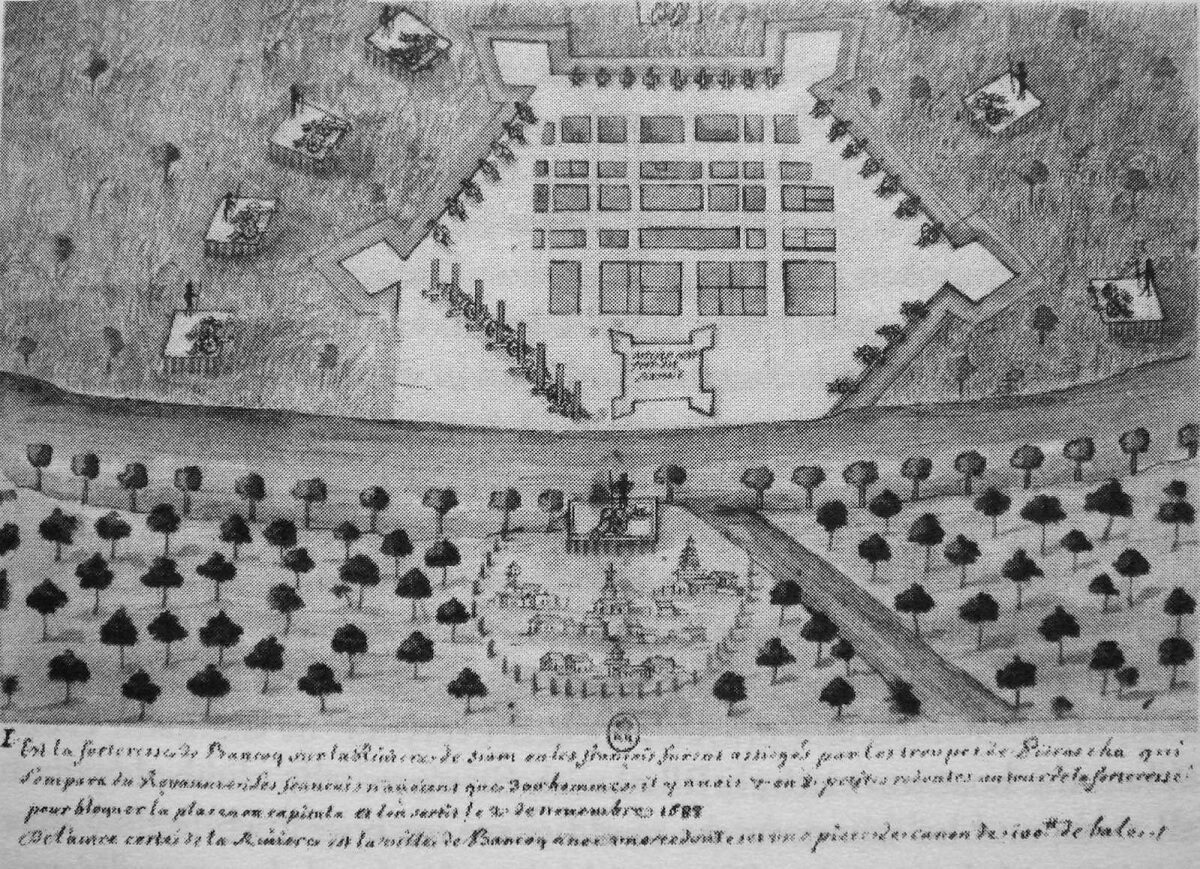 I Est la forteresse de Bancoq sur la Riviere de siam ou les francois furent assiegés par les troupes de Pitracha qui
s'empara du Royaume les francois n'avoient que 300 hommes, il y avoit petites redoutes autour de la forteresse
pour bloquer la place on capitula et l'on sortit le 2 de novembre 1688
De l'autre costé de la Riviere est la ville de Bancoq avec une redoute et une piece de canon de de bales